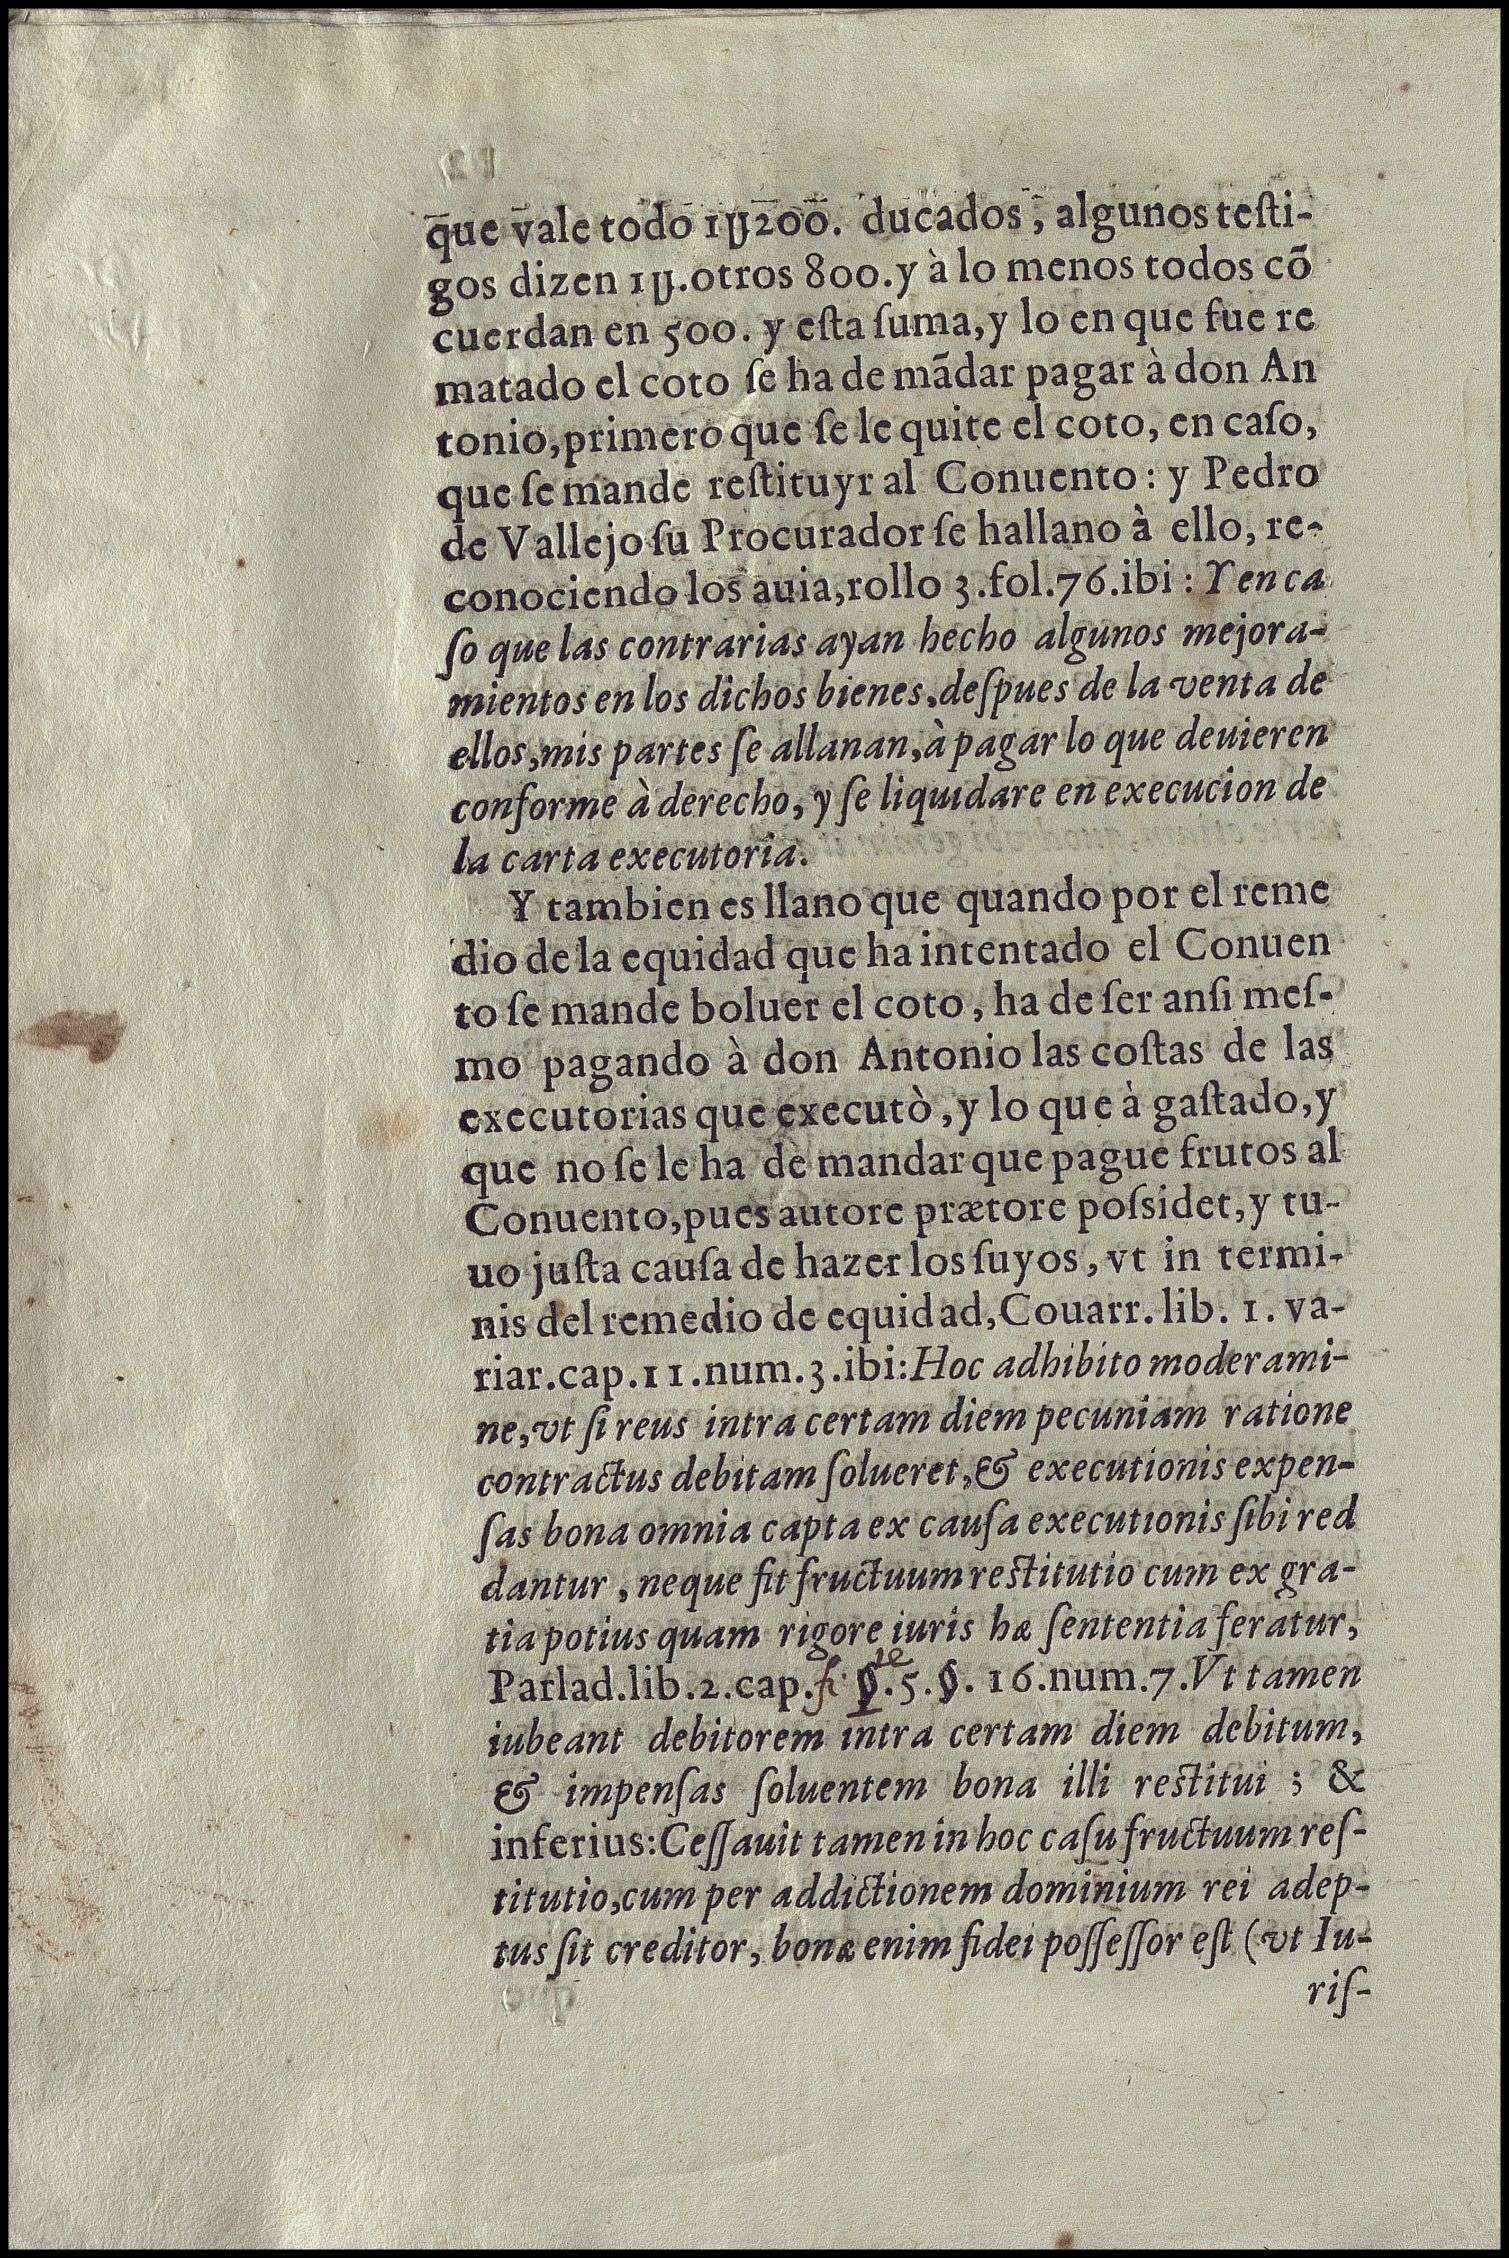 que vale todo 1U200. ducados, algunos testi-
gos dizen 1U. otros 800. y à lo menos todos cõ
cuerdan en 500. y esta suma, y lo en que fue re
matado el coto se ha de mãdar pagar à don An
tonio, primero que se le quite el coto, en caso,
que se mande restituyr al Conuento: y Pedro
de Vallejo su Procurador se hallano à ello, re-
conociendo los auia, rollo 3. fol. 76. ibi: Y en ca
so que las contrarias ayan hecho algunos mejora-
mientos en los dichos bienes, despues de la venta de
ellos, mis partes se allanan, à pagar lo que deuieren
conforme à derecho, y se liquidare en execucion de
la carta executoria.
Y tambien es llano que quando por el reme
dio de la equidad que ha intentado el Conuen
to se mande boluer el coto, ha de ser ansi mes-
mo pagando à don Antonio las costas de las
executorias que executò, y lo que à gastado, y
que no se le ha de mandar que pague frutos al
Conuento, pues autore prætore possidet, y tu-
uo justa causa de hazer los suyos, vt in termi-
nis del remedio de equidad, Couarr. lib. 1. va-
riar. cap. 11. num. 3. ibi: Hoc adhibito moderami-
ne, vt si reus intra certam diem pecuniam ratione
contractus debitam solueret, & executionis expen-
sas bona omnia capta ex causa executionis sibi red
dantur, neque fit fructuum restitutio cum ex gra-
tia potius quam rigore iuris hæ sententia feratur,
Parlad. lib. 2. cap. fi. §. 5. §. 16. num. 7. Vt tamen
iubeant debitorem intra certam diem debitum,
& impensas soluentem bona illi restitui; &
inferius: Cessauit tamen in hoc casu fructuum res-
titutio, cum per addictionem dominium rei adep-
tus sit creditor, bonæ enim fidei possessor est (vt Iu-
ris-